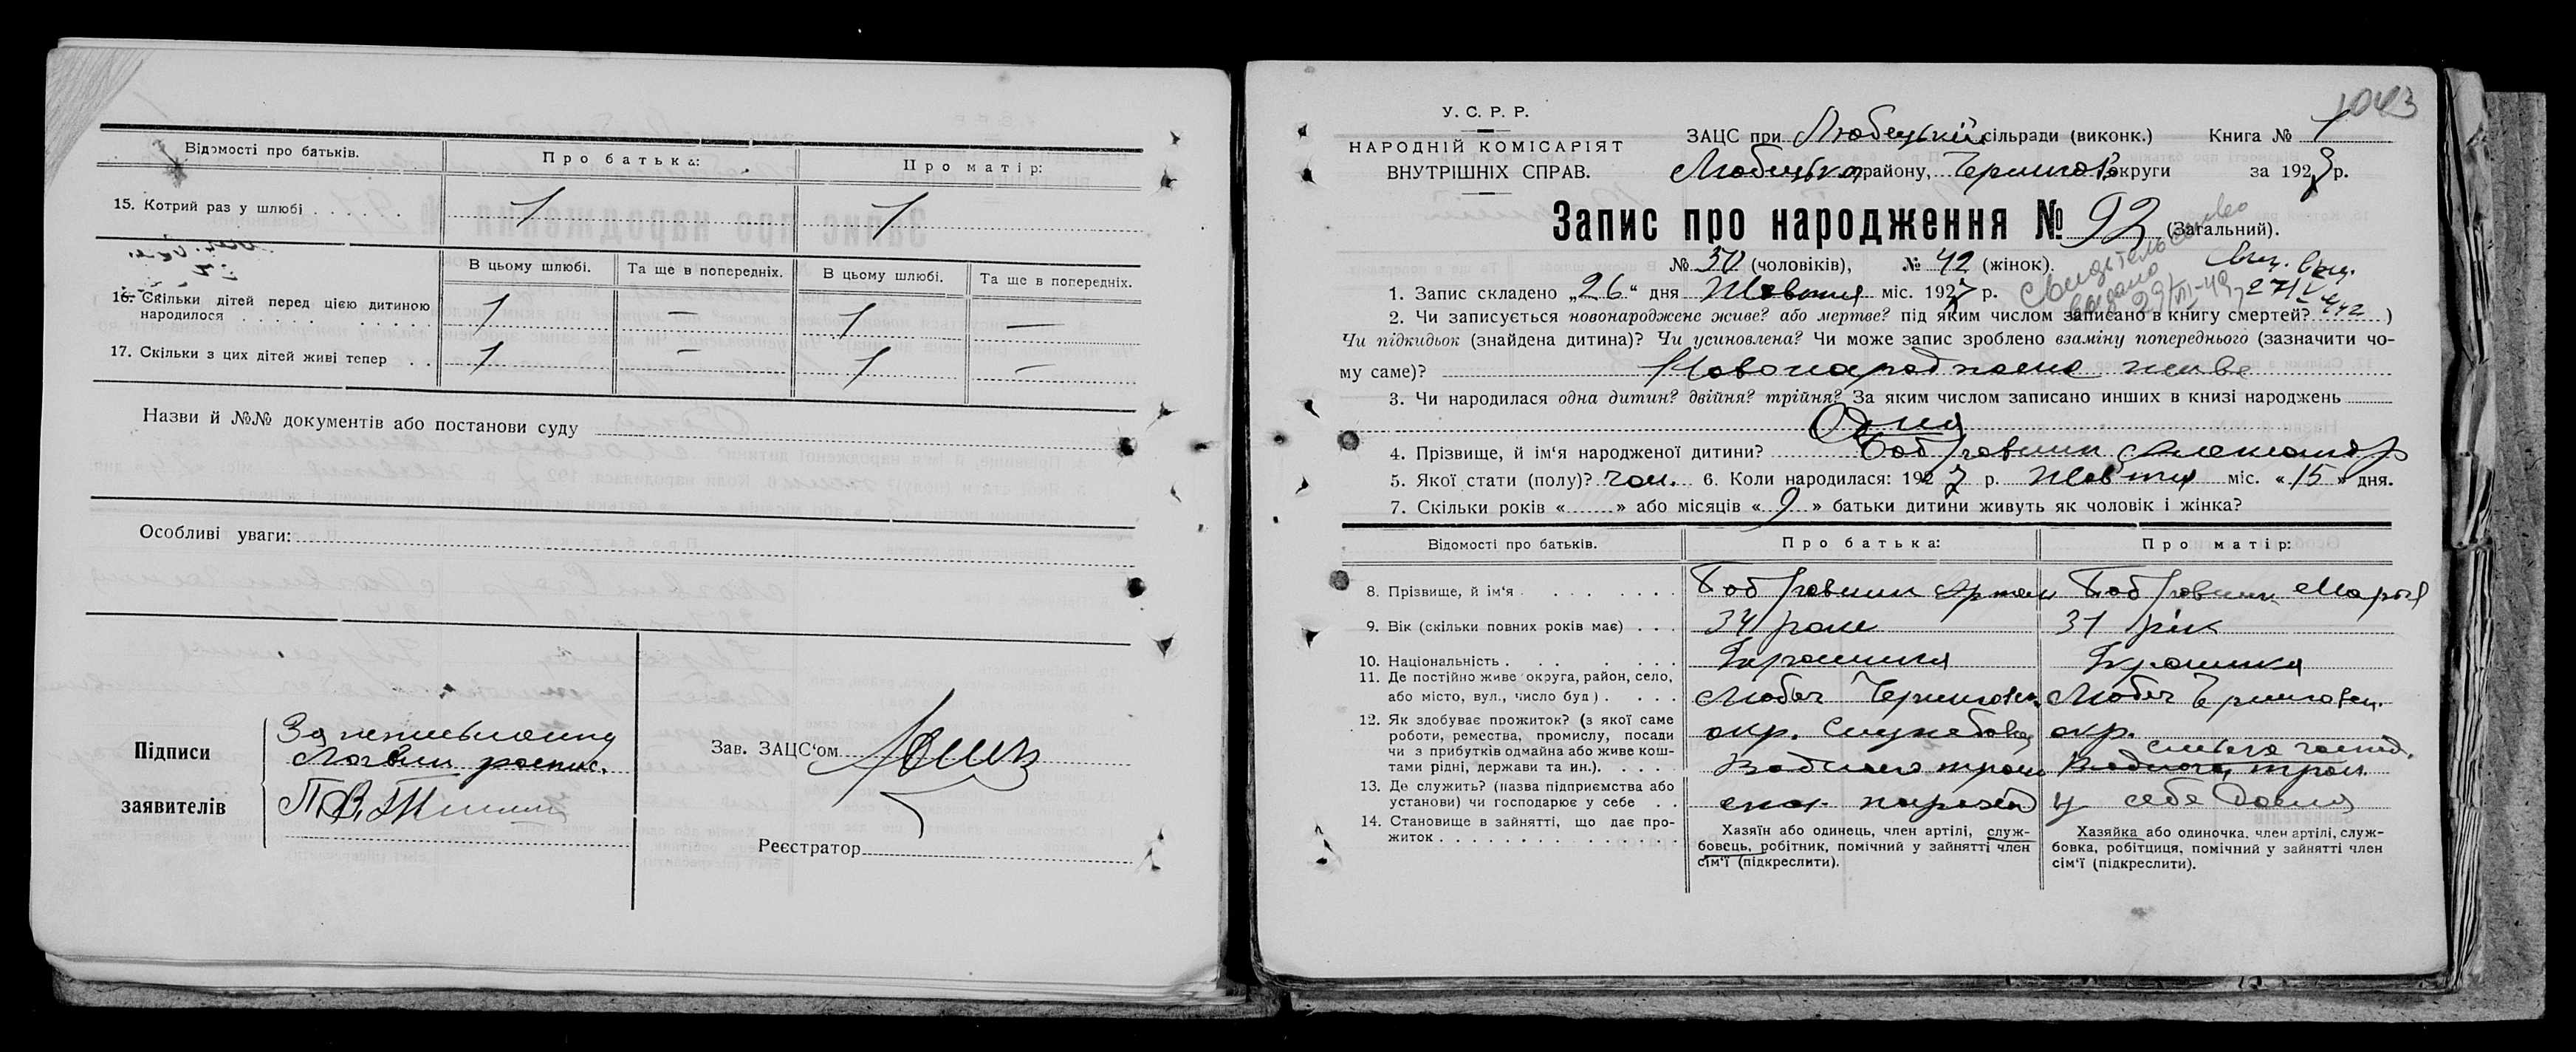 Відомості про батьків.
Про батька:
Про матір:
15. Котрий раз у шлюбі
1
1
В цьому шлюбі.
Та ще в попередніх.
В цьому шлюбі.
Та ще в попередніх.
16. Скільки дітей перед цією дитиною
народилося
1 — 1 —
17. Скільки з цих дітей живі тепер
1 — 1 —
Назви й №№ документів або постанови суду
Особливі уваги:
Підписи
заявителів
Логвин роспис.
Зав. ЗАЦС'ом
Реєстратор
1043
У. С. Р. Р.
НАРОДНІЙ КОМІСАРІЯТ
ВНУТРІШНІХ СПРАВ.
ЗАЦС при Любецькій сільради (виконк.) Книга № 1
Любецького району, Черниговск округи за 192 р.
Запис про народження № 92 (Загальний).
№ 50 (чоловіків), № 42 (жінок).
Свидетельство
выдано
1. Запис складено „26“ дня Жовтня міс. 1927 р.
2. Чи записується новонароджене живе? або мертве? під яким числом записано в книгу смертей? )
Чи підкидьок (знайдена дитина)? Чи усиновлена? Чи може запис зроблено взаміну попереднього (зазначити чо-
му саме)? Новонароджене живе
3. Чи народилася одна дитин? двійня? трійня? За яким числом записано инших в книзі народжень
Одна
4. Прізвище, й ім'я народженої дитини? Бобровник Александр
5. Якої стати (полу)? чол. 6. Коли народилася: 1927 р. Жовтня міс. «15» дня.
7. Скільки років «......» або місяців «9» батьки дитини живуть як чоловік і жінка?
Відомості про батьків.
Про батька:
Про матір:
8. Прізвище, й ім'я
Бобровник Артем
Бобровник Марія
9. Вік (скільки повних років має)
34 роки
31 рік
10. Національність
Украинка
Украинка
11. Де постійно живе округа, район, село,
або місто, вул., число буд).
Любеч Черниговск.
окр.
Любеч Черниговск.
окр.
12. Як здобуває прожиток? (з якої саме
роботи, ремества, промислу, посади
чи з прибутків одмайна або живе кош-
тами рідні, держави та ин.).
Служебовец
Водного тран
13. Де служить? (назва підприємства або
установи) чи господарює у себе
у себе дома
14. Становище в зайнятті, що дає про-
житок
Хазяїн або одинець, член артілі, служ-
бовець, робітник, помічний у зайнятті член
сім'ї (підкреслити).
Хазяйка або одиночка, член артілі, служ-
бовка, робітциця, помічний у зайнятті член
сім'ї (підкреслити).